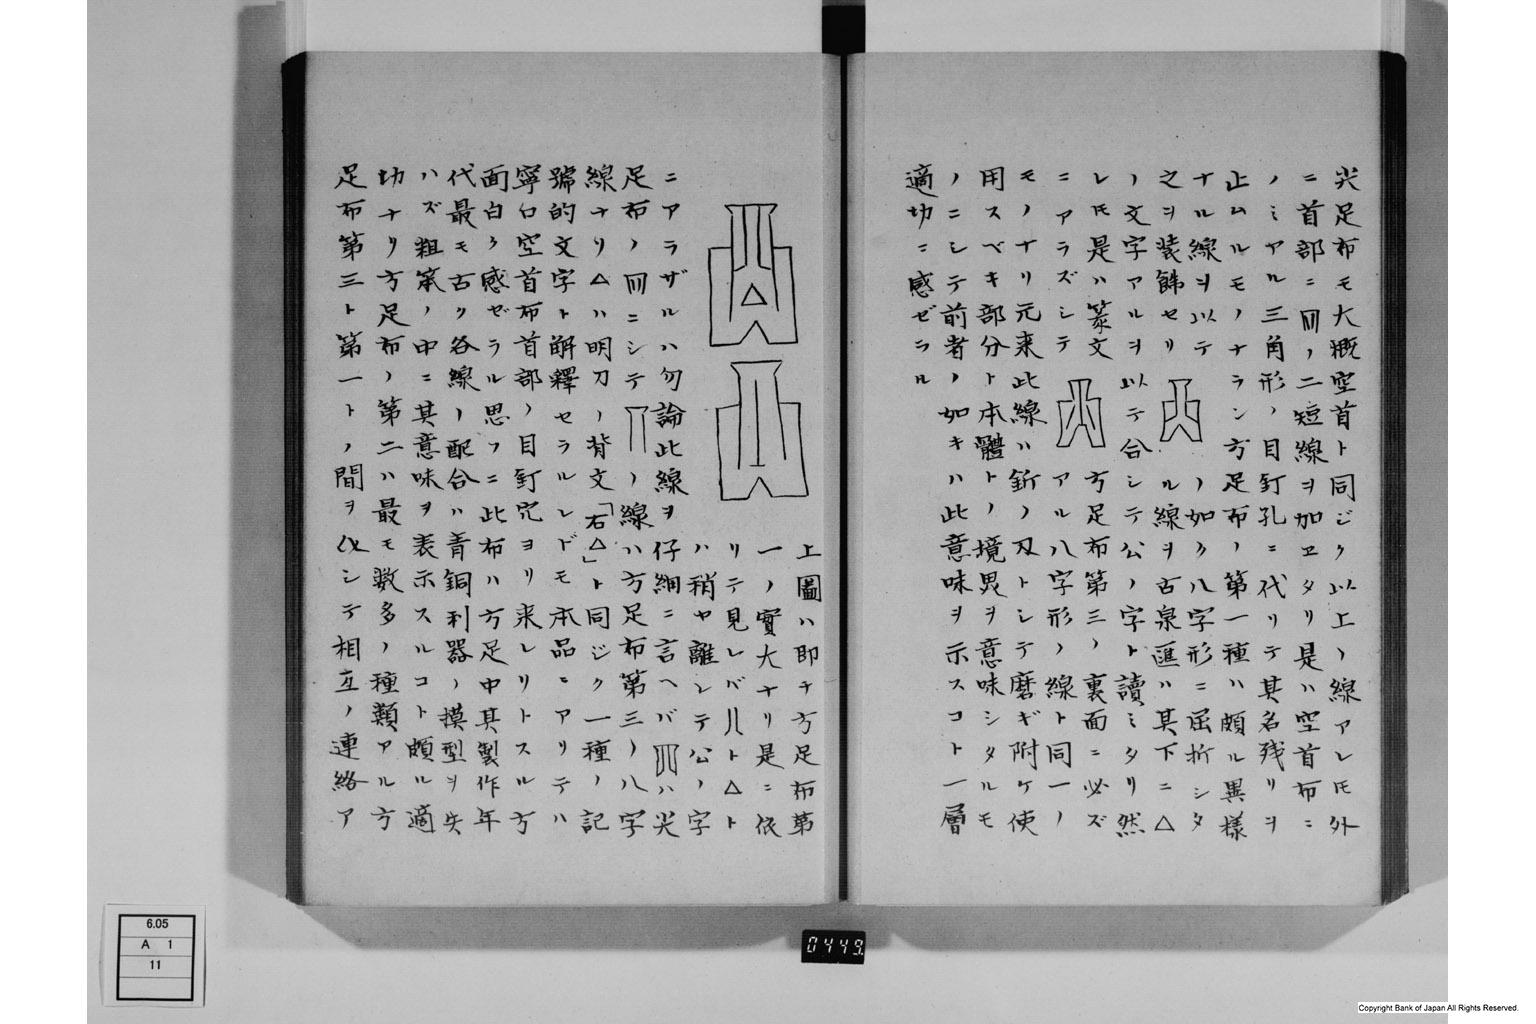 尖足布モ大概空首ト同ジク以上ノ線アレモ外
ニ首部ニノ二短線ヲ加ヱタリ是ハ空首布ニ
ノミヤル三角形ノ目釘孔ニ代リテ其名残リヲ
止ムルモノナラン方足布ノ第一種ハ頗ル異樣
ナル線ヲ以テ
之ヲ装餙セリ
ノ如ク八字形ニ屈折シタ
ル線ヲ古泉匯ハ其下ニ△
ノ文字アルヲ以テ合シテ公ノ字ト讀ミタリ然
レモ是ハ篆文
ニアラズシテ
方足布第三ノ裏面ニ必ズ
アル八字形ノ線ト同一ノ
モノナリ元来此線ハ釿ノ刄トシテ磨ギ附ケ使
用スベキ部分ト本體トノ境界ヲ意味シタルモ
ノニシテ前者ノ如キハ此意味ヲ示スコト一層
適切ニ感ゼラル
上圖ハ即チ方足布第
一ノ實大ナリ是ニ依
リテ見レバト△ト
ハ稍ヤ離レテ公ノ字
ニアラザルハ勿論此線ヲ仔細ニ言ヘバハ尖
足布ノニシテノ線ハ方足布第三ノ八字
線ナリ△ハ明刀ノ背文「右△」ト同ジク一種ノ記
號的文字ト解釋セラルレドモ本品ニアリテハ
寧ロ空首布首部ノ目釘穴ヨリ来レリトスル方
面白ク感ゼラル思フニ此布ハ方足中其製作年
代最モ古ク各線ノ配合ハ青銅利器ノ摸型ヲ失
ハズ粗笨ノ中ニ其意味ヲ表示スルコト頗ル適
切ナリ方足布ノ第二ハ最モ数多ノ種類アル方
足布第三ト第一トノ間ヲシテ相互ノ連絡ア
6.05
A 1
11
0449
Copyright Bank of Japan All Rights Reserved.